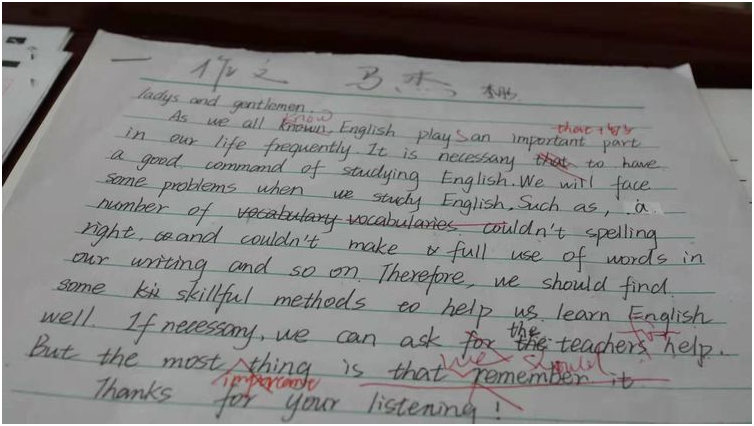 一 作文
ladys and gentlemen.
know that + 句子
As we all known, English plays an important part
in our life frequently. It is necessary that to have
a good command of studying English. We will face
some problems when we study English. Such as, a
number of vocabulary vocabularies couldn't spelling
right, and couldn't make full use of words in
our writing and so on. Therefore, we should find
some skillful methods to help us learn English
well. If necessary, we can ask for the the teachers help.
for
But the most thing is that we should remember it
important
Thanks for your listening!